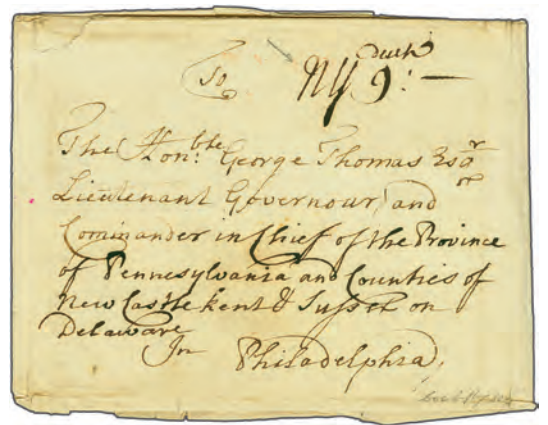 To
NY 9:—
The Honble. George Thomas Esqr
Lieutenant Governour and
Commander in Chief of the Province
of Pennesylvania and Counties of
New Castle Kent & Sussex on
Delaware
In Philadelphia.